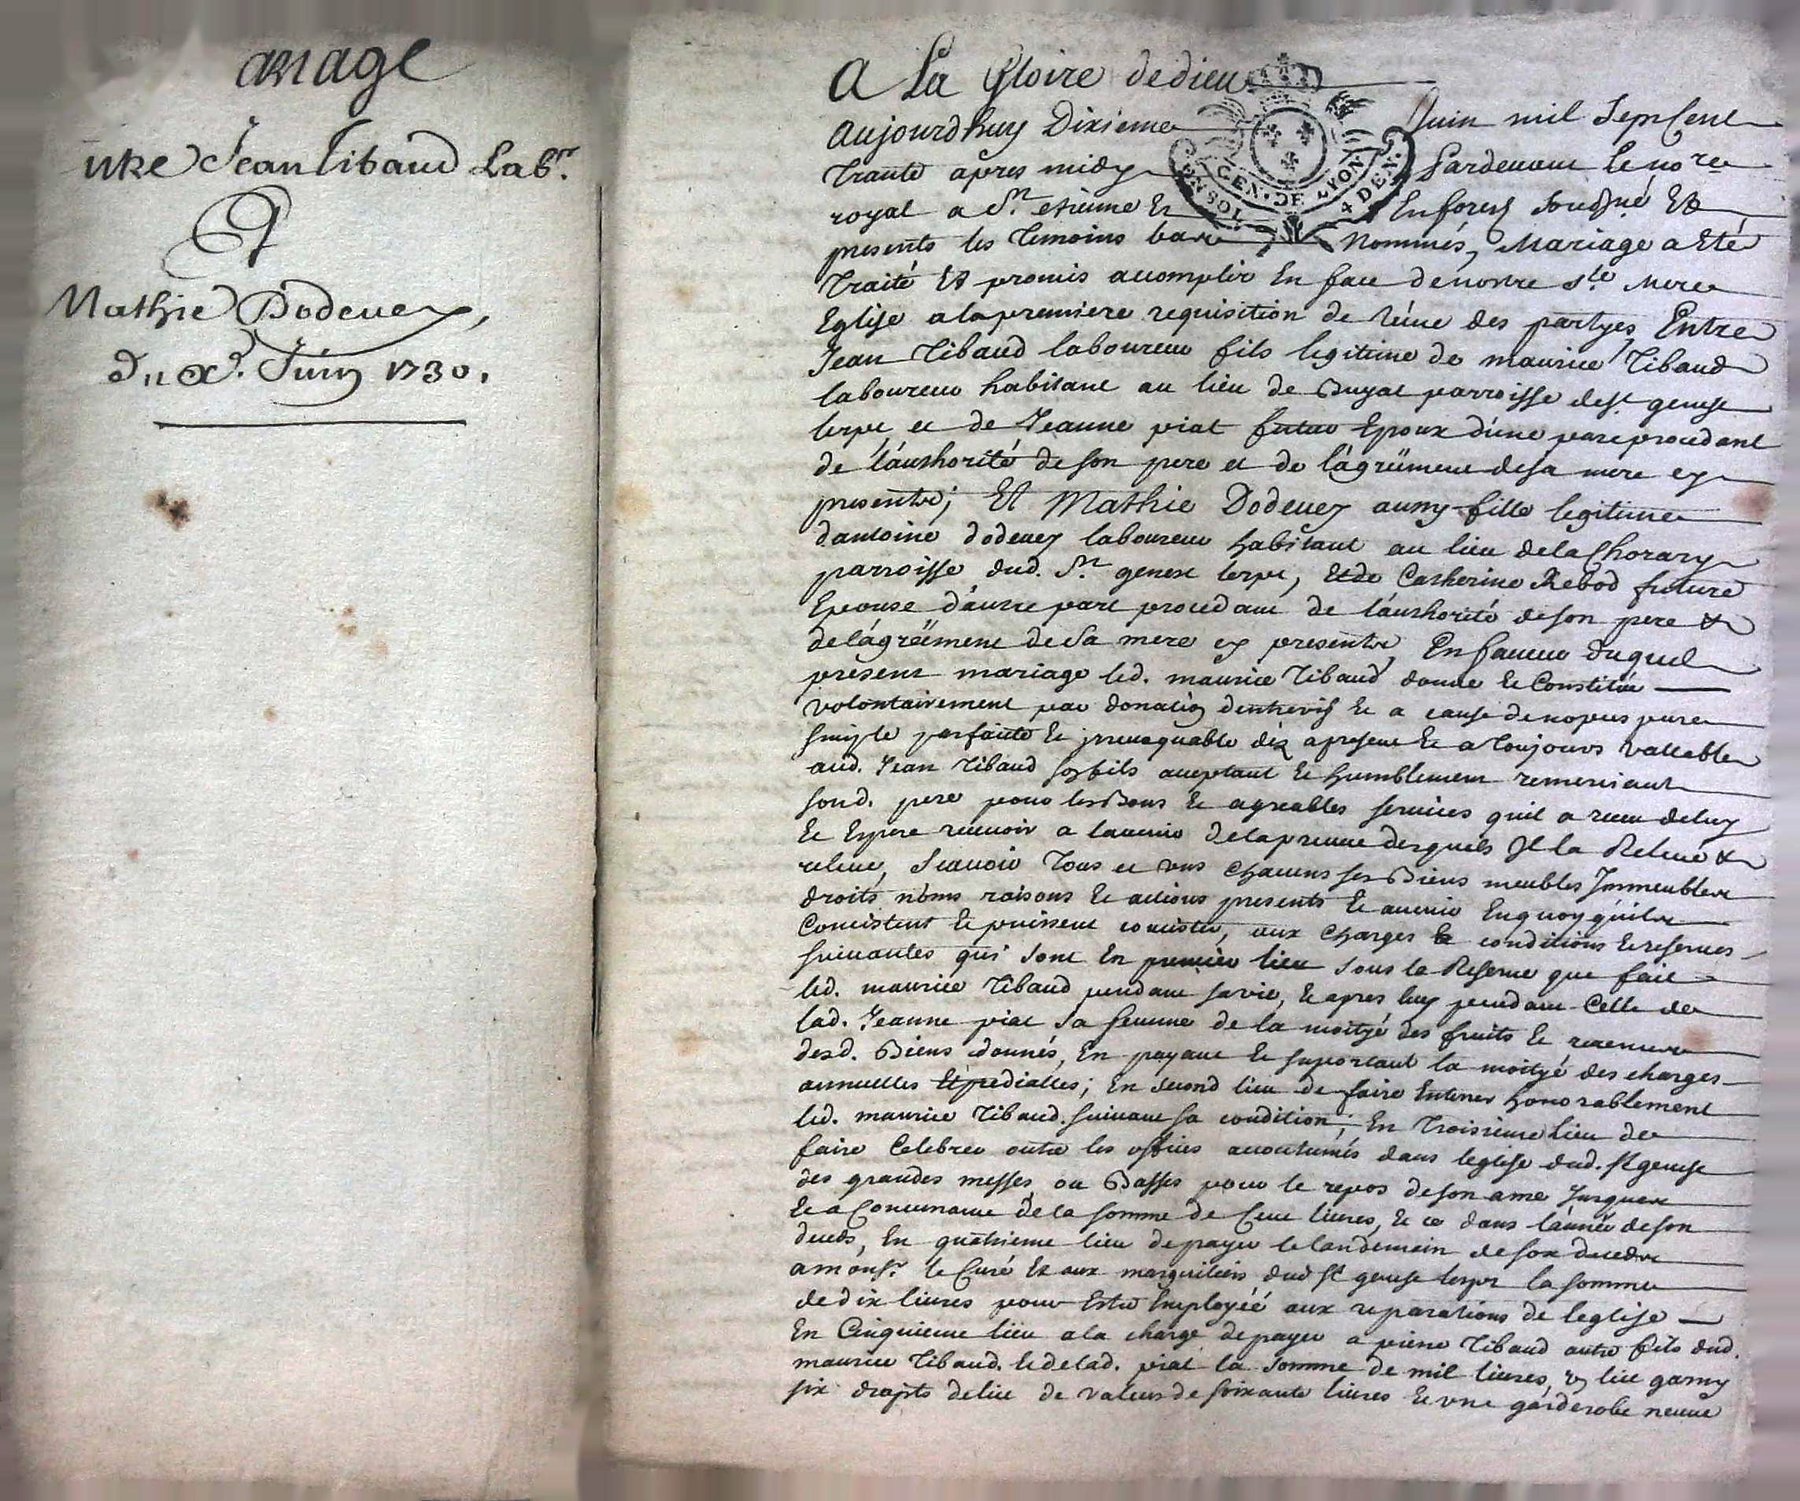 ariage
ntre Jean Tibaud Labr.
Et
Mathie Dodevey,
Du xe. Juin 1730.
A La Gloire de dieu
Aujourdhuy Dixieme Juin mil Sept Cent
Trante apres midy Pardevant le nore
royal a St. etienne En forest Sousigné Et
presents les Temoins bas Nommés, Mariage a Eté
Traité Et promis accomplir En face denostre Ste. Mere
Eglise alapremiere requisition de l'une des partyes Entre
Jean Tibaud laboureur fils legitime de maurice Tibaud
laboureur habitant au lieu de Buyat parroisse de st. genest
lerpt et de Jeanne viat futur Epoux d'une part procedant
de l'authorité de son pere et de l'agréement desa mere cy
presente; Et Mathie Dodevey aussy fille legitime
dantoine dodevey laboureur habitant au lieu dela Chorary
parroisse dud. St. genest lerpt, Et de Catherine Rebod future
Epouse d'autre part procedant de l'authorité deson pere &
del'agréement de Sa mere cy presente, En faveur duquel
present mariage led. maurice Tibaud donne Et Constitue
volontairement par donation dentrevif Et a cause denopces pure
simple parfaite Et irrevoquable déz apresent Et atoujours vallable
aud. Jean Tibaud son fils acceptant Et humblement remerciant
sond. pere pour les Bons Et agreables services quil a receu deluy
Et Espere recevoir a lavenir delapreuve desquels Il la Relevé &
releve, Scavoir Tous et uns chacuns ses Biens meubles Immeubles
droits noms raisons Et actions presents Et avenir Enquoy quils
Concistent Et puissent concister, aux charges Et conditions Et reserves
suivantes qui sont En premier lieu sous la Reserve que fait
led. maurice Tibaud pendant savie, Et apres luy pendant Celle de
lad. Jeanne viat Sa femme de la moityé des fruits Et revenus
desd. Biens donnés, En payant Et suportant la moityé des charges
annuelles Et predialles; En second lieu de faire Enterrer honorablement
led. maurice Tibaud suivant sa condition; En Troisieme lieu de
faire Celebrer outre les offices accoutumés dans leglise dud. St genest
des grandes messes ou Basses pour le repos deson ame Jusques
Et a Concurrance de la somme de Cent livres, Et ce dans l'année deson
deceds, En quatrieme lieu de payer le landemain de son deceds
a monsr. le Curé Et aux marguiliers dud St genest lerpt la somme
de dix livres pour Estre Employéé aux reparations de leglise
En Cinquieme lieu ala charge de payer a pierre Tibaud autre fils dud.
maurice Tibaud. Et delad. viat la somme de mil livres, un lict garny
six drapts delict de valeur de soixante livres Et une garderobe neuve
GEN. DE LYON
4 DEN.